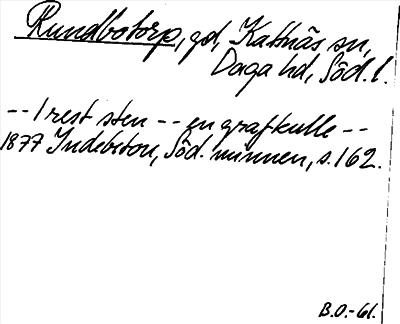 Rundbotorp, gd, Kattnäs sn,
Daga hd, Söd. l.
-- 1 rest sten -- en grafkulle --
1877 Indebetou, Söd. minnen, s. 162.
B.O.-61.